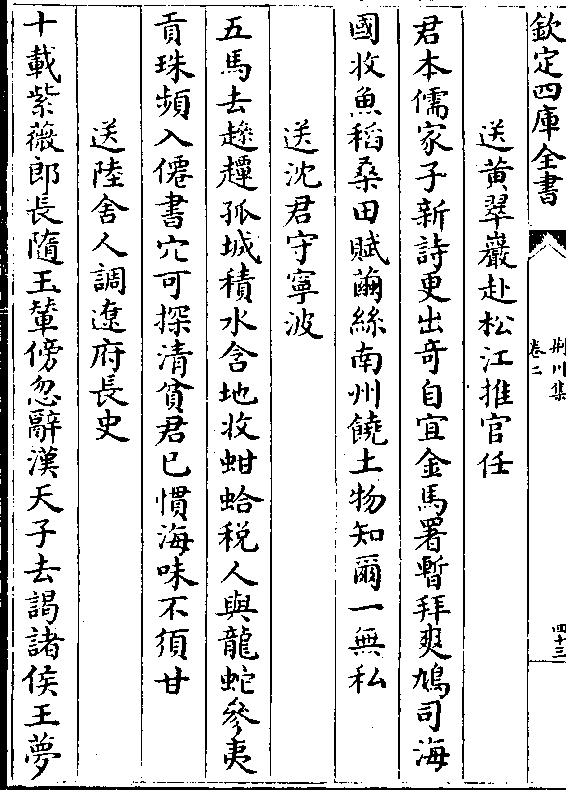 欽定四庫全書
荆川集
卷二
四十三
送黄翠巖赴松江推官任
君本儒家子新詩更出竒自宜金馬署暫拜爽鳩司海
國收魚稻桑田賦繭絲南州饒土物知爾一無私
送沈君守寧波
五馬去趍𧽼孤城積水含地收蚶蛤税人與龍蛇參夷
貢珠頻入僊書穴可探清貧君已慣海味不須甘
送陸舍人調遼府長史
十載紫薇郎長隨玉輦傍忽辭漢天子去謁諸侯王夢